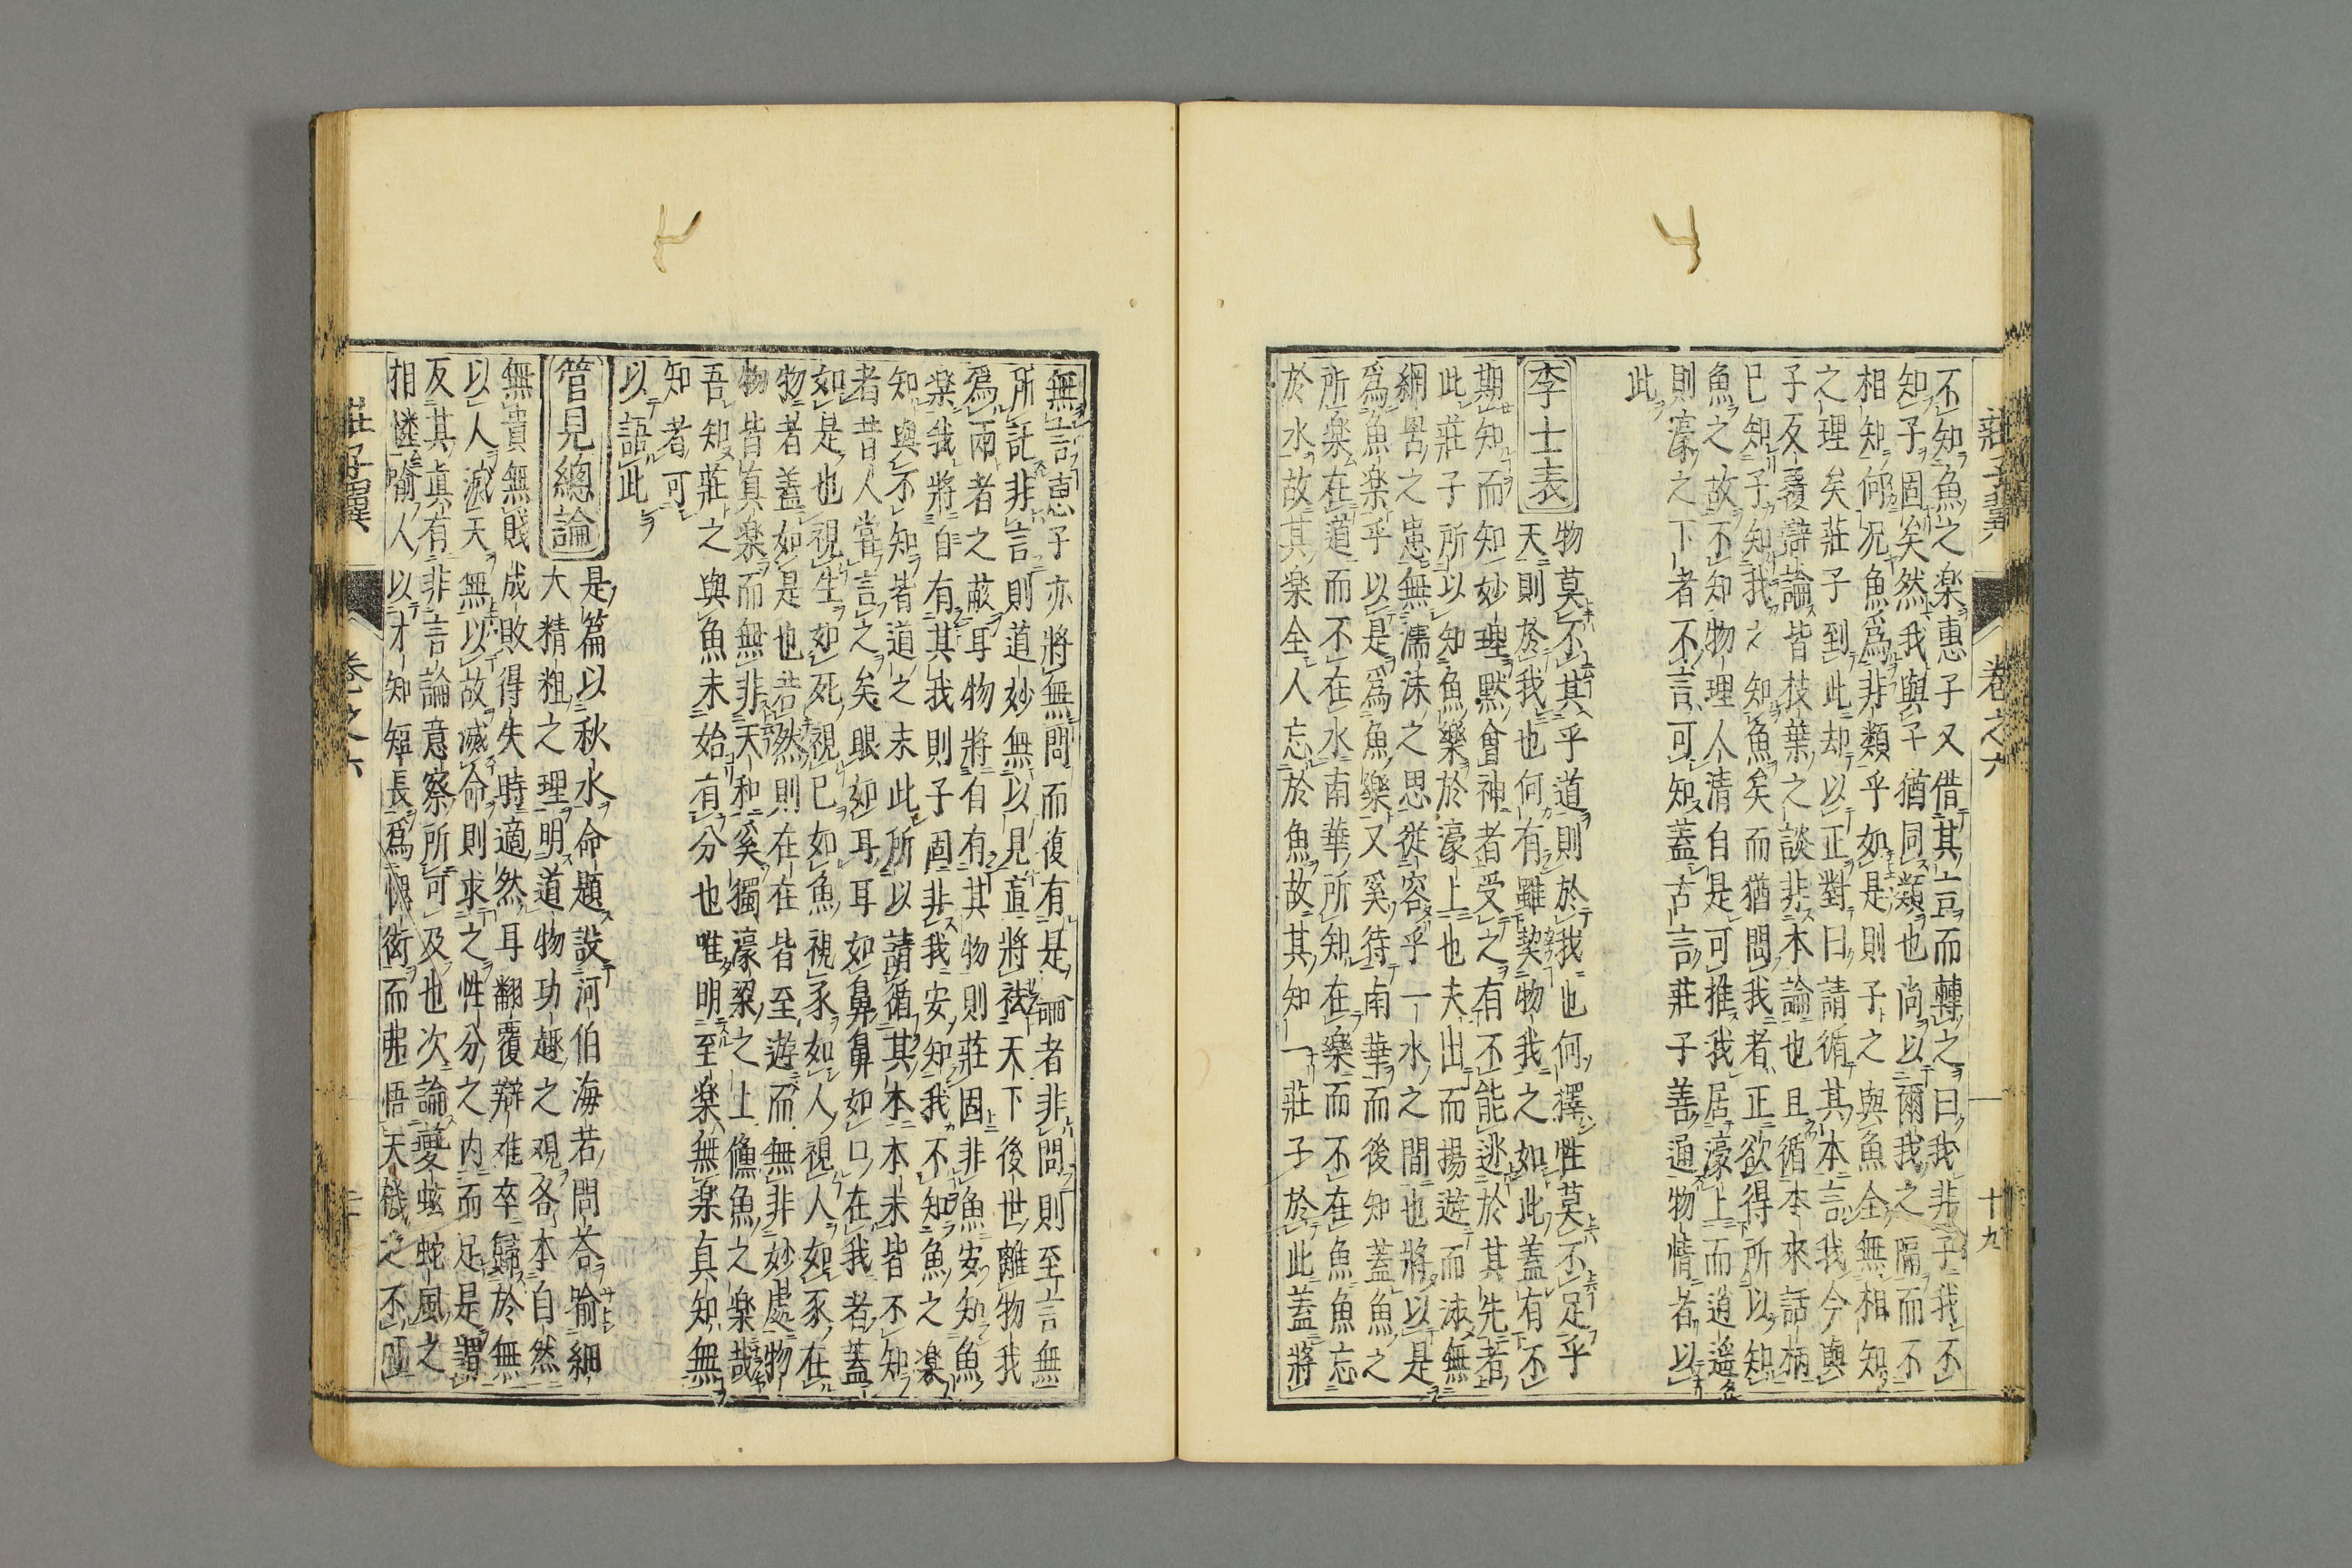 莊子翼 卷之六 十九
不知魚之楽惠子又借其言而轉之曰我非子我不
知子固矣然我與子猶同類也尚以爾我之隔而不
相知何况魚爲非類乎如是則子之與魚全無相知
之理矣莊子到此却以正對曰請循其本言我今與
子反覆辯論皆枝葉之談非本論也且循本來話柄
已知子知我之知魚矣而猶問我者正欲得所以知
魚之故不知物理人清自是可推我居濠上而逍遥
則濠之下者不言可知蓋古言莊子善通物情者以
此
李士表
物莫不其乎道則於我也何擇性莫不足乎
天則於我也何有雖契物我之如此蓋有不
期知而知妙理默會神者受之有不能逃於其先者
此莊子所以知魚樂於濠上也夫出而揚遊而泳無
網罟之患無濡沫之思從容乎一水之間也將以是
爲魚楽乎以是爲魚樂又奚待南華而後知蓋魚之
所楽在道而不在水南華所知在樂而不在魚魚忘
於水故其楽全人忘於魚故其知一莊子於此蓋將
無言惠子亦將無問而復有是論者非問則至言無
所託非言則道妙無以見直將袪天下後世離物我
爲兩者之蔽耳物將自有其物則莊固非魚安知魚
楽我將自有其我則子固非我安知我不知魚之楽
知與不知皆道之末此所以請循其本本未皆不知
者昔人嘗言之矣眼如耳耳如鼻鼻如口在我者蓋
如是也視生如死視已如魚視豕如人視人如豕在
物者蓋如是也若然則在在皆至遊而無非妙處物
物皆真楽而無非天和奚獨濠梁之上鯈魚之楽哉
吾知莊之與魚未始有分也唯明至楽無楽真知無
知者可
以語此
管見總論
是篇以秋水命題設河伯海若問荅喻細
大精粗之理明道物功趣之觀各本自然
無貴無賎成敗得失時適然耳翻覆辯难卒歸於無
以人滅天無以故滅命則求之性分之内而足是謂
反其真有非言論意察所可及也次論夔蚿蛇風之
相憐喻人以才知短長爲愧衒而弗悟天機之不
莊子翼 卷之六